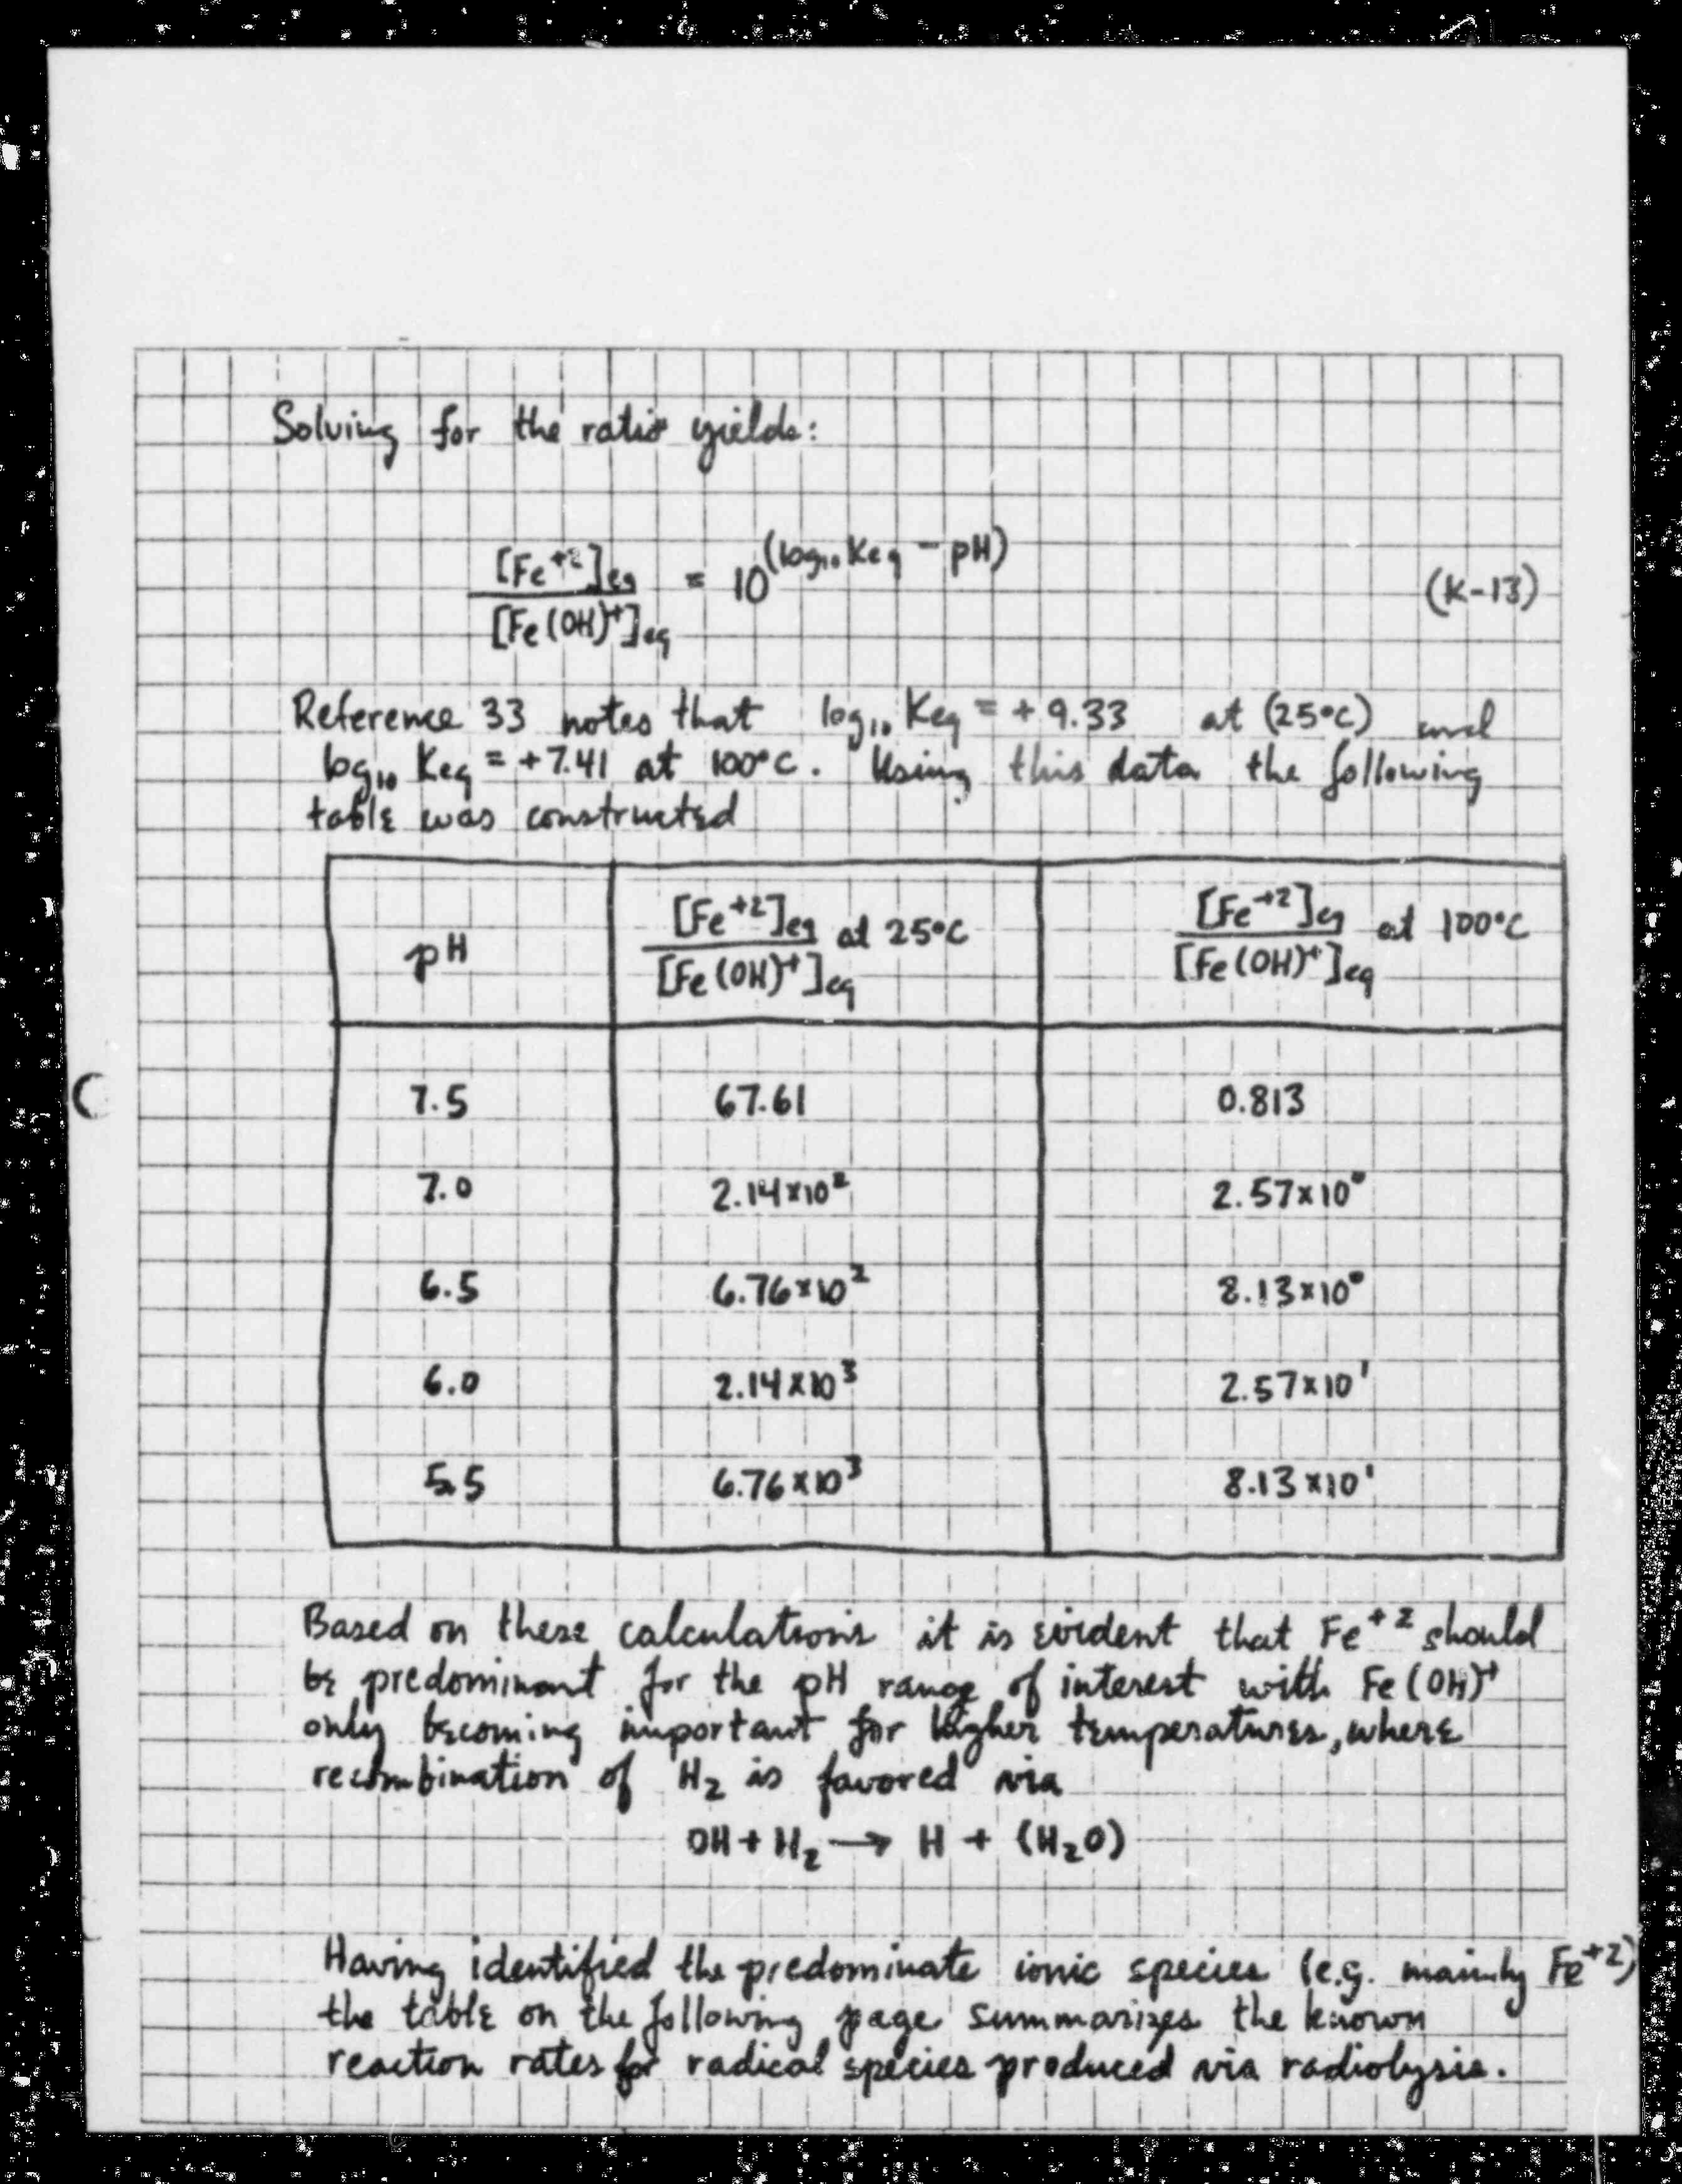 Solving for the ratio yields:
[Fe⁺²]eq / [Fe(OH)⁺]eq = 10^(log₁₀ Keq - pH) (K-13)
Reference 33 notes that log₁₀ Keq = +9.33 at (25°C) and
log₁₀ Keq = +7.41 at 100°C. Using this data the following
table was constructed
pH | [Fe⁺²]eq / [Fe(OH)⁺]eq at 25°C | [Fe⁺²]eq / [Fe(OH)⁺]eq at 100°C
7.5 | 67.61 | 0.813
7.0 | 2.14x10² | 2.57x10⁰
6.5 | 6.76x10² | 8.13x10⁰
6.0 | 2.14x10³ | 2.57x10¹
5.5 | 6.76x10³ | 8.13x10¹
Based on these calculations it is evident that Fe⁺² should
be predominant for the pH range of interest with Fe(OH)⁺
only becoming important for higher temperatures, where
recombination of H₂ is favored via
OH + H₂ → H + (H₂O)
Having identified the predominate ionic species (e.g. mainly Fe⁺²)
the table on the following page summarizes the known
reaction rates for radical species produced via radiolysis.